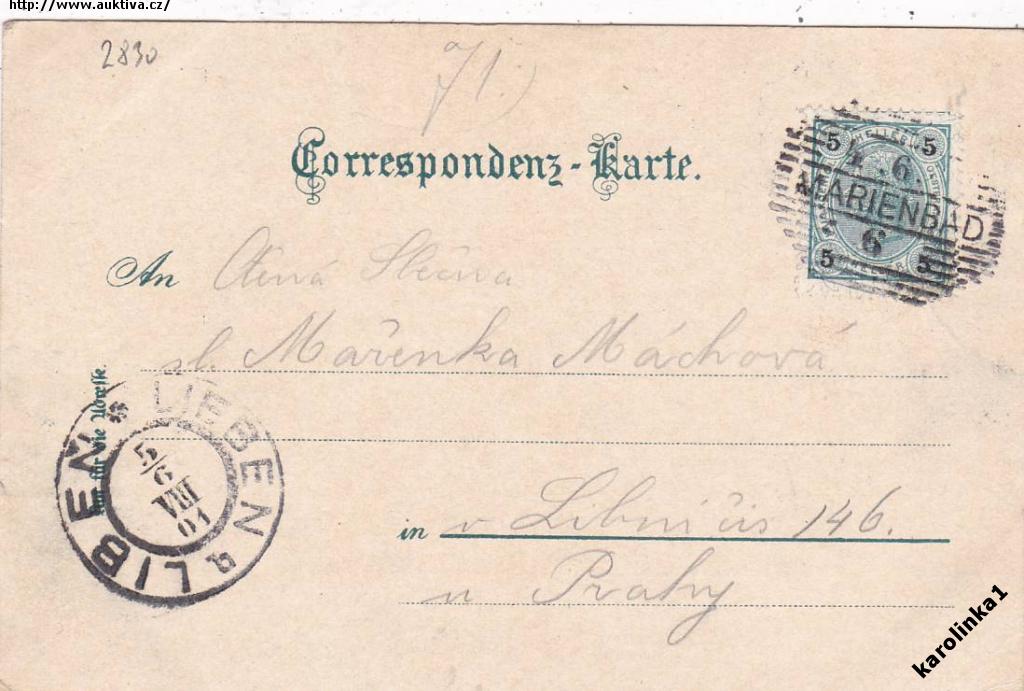 http://www.auktiva.cz/
2830
71.)
Correspondenz-Karte.
5 HELLER 5
4. 6.
MARIENBAD
6
5 HELLER 5
An Ctěná Slečna
sl. Mařenka Máchová
Nur für die Adresse.
LIEBEN * LIBEŇ *
5/6
VIII
01
in v Libni čís 146.
u Prahy
karolinka1